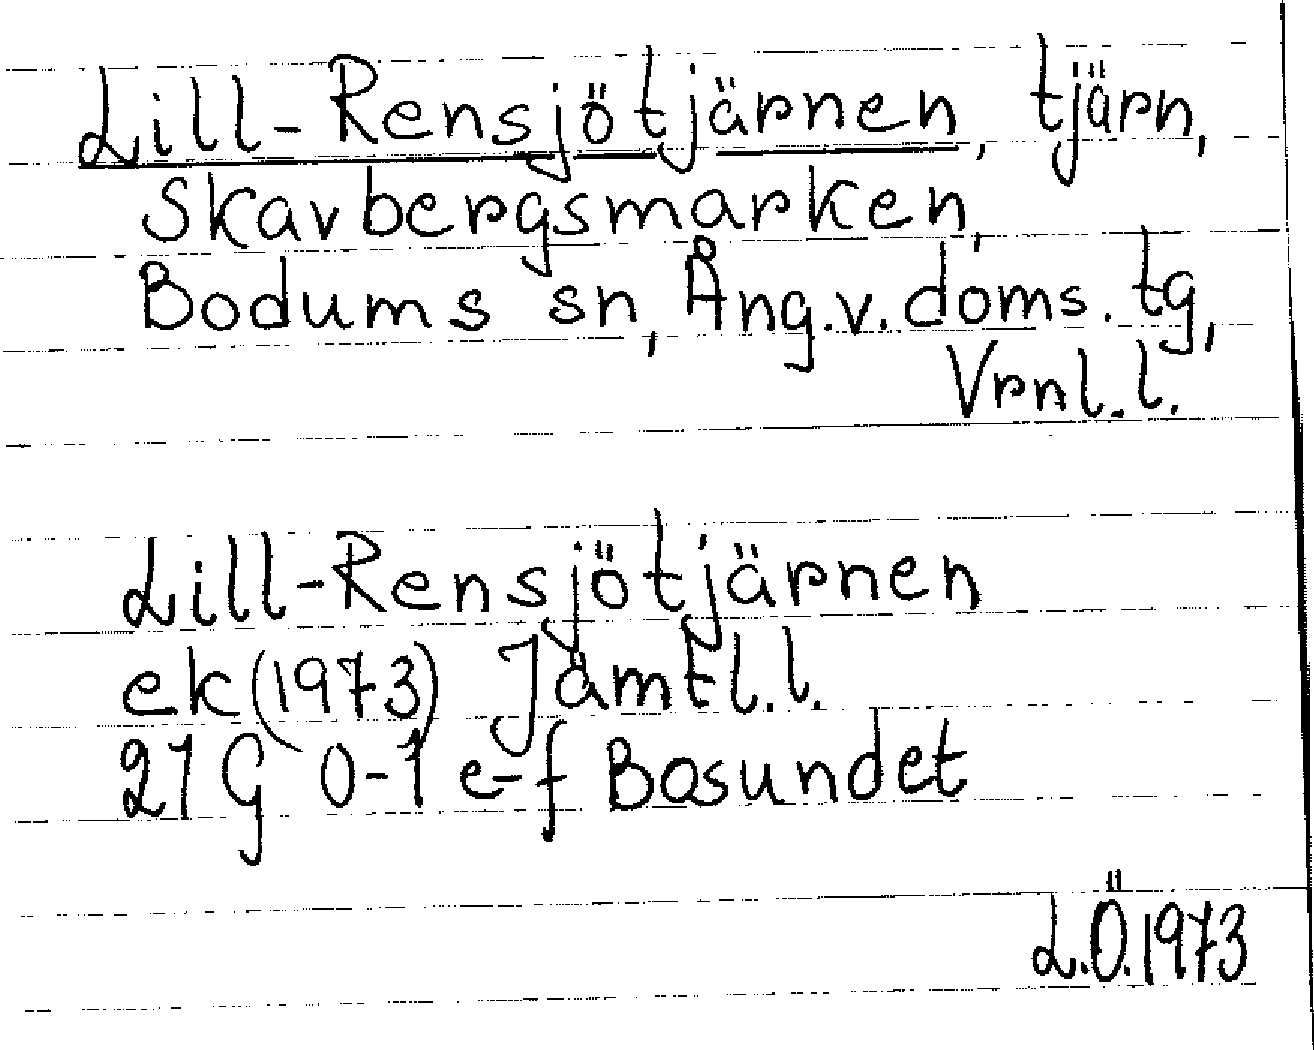 Lill-Rensjötjärnen, tjärn,
Skavbergsmarken,
Bodums sn, Ång.v.doms.tg,
Vrnl.l.
Lill-Rensjötjärnen
ek(1973) Jämtl.l.
21G 0-1 e-f Bosundet
L.Ö.1973